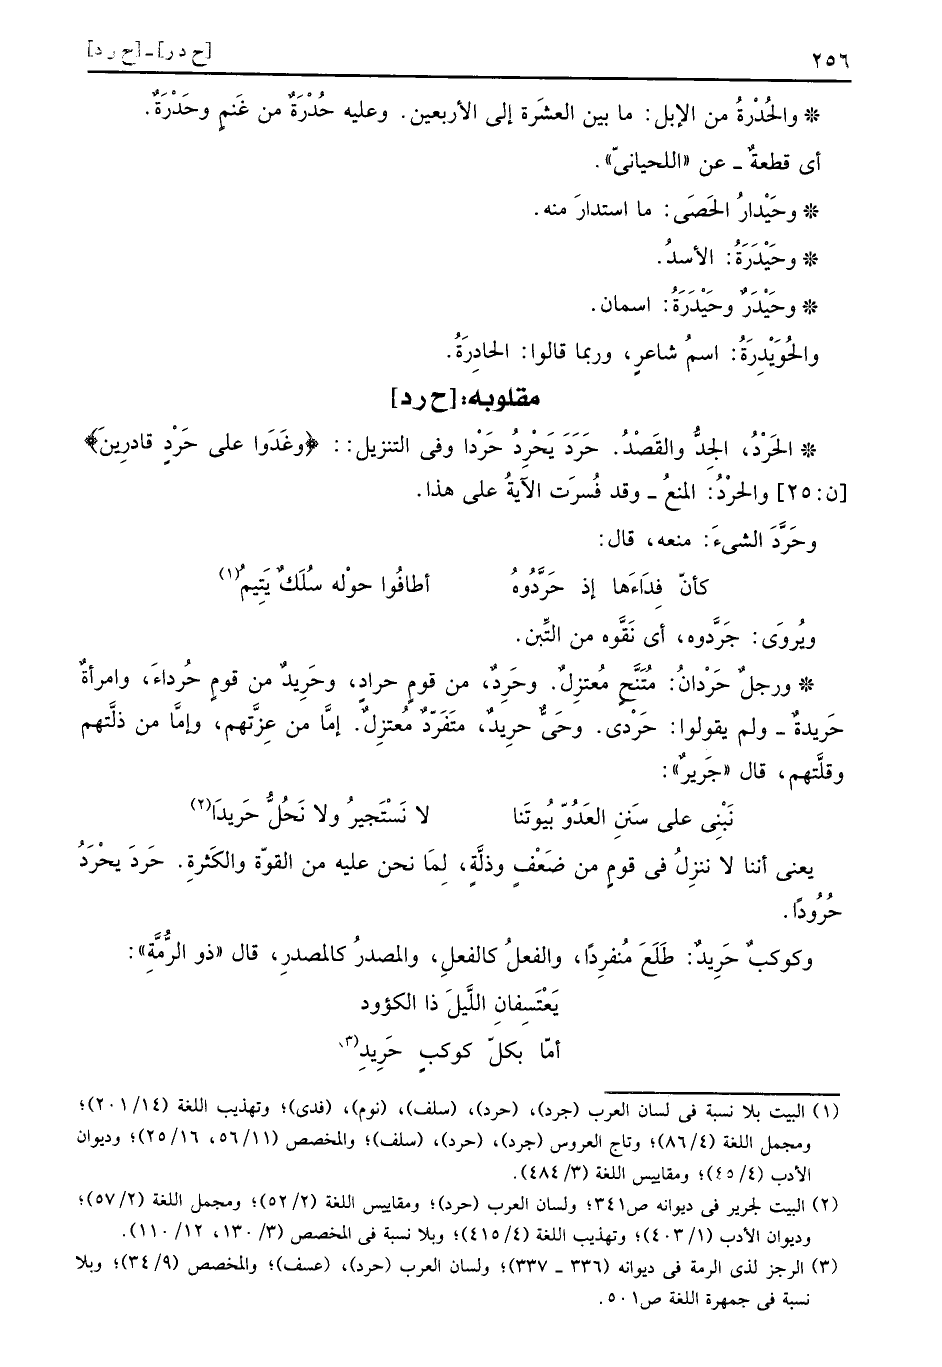 ٢٥٦ [ح در] ـ [ح ر د]
* والحُدْرةُ من الإبل: ما بين العشَرة إلى الأربعين. وعليه حُدْرَةٌ من غَنمٍ وحَدْرَةٌ.
أى قطعةٌ ـ عن «اللحيانىّ».
* وحَيْدارُ الحَصَى: ما استدارَ منه.
* وحَيْدَرَةُ: الأسدُ.
* وحَيْدَرٌ وحَيْدَرَةُ: اسمان.
والحُوَيْدِرَةُ: اسمُ شاعرٍ، وربما قالوا: الحادِرَةُ.
مقلوبه: [ح ر د]
* الحَرْدُ، الجِدُّ والقَصْدُ. حَرَدَ يَحْرِدُ حَرْدا وفى التنزيل: : ﴿وغَدَوا على حَرْدٍ قادرين﴾
[ن: ٢٥] والحرْدُ: المنعُ ـ وقد فُسرَت الآيةُ على هذا.
وحَرَّدَ الشىءَ: منعه، قال:
كأنّ فِدَاءَها إذ حَرَّدُوهُ أطافُوا حوْله سُلَكٌ يَتِيمُ(١)
ويُروَى: جَرَّدوه، أى نَقَّوه من التِّبن.
* ورجلٌ حَرْدانُ: مُتَنَحٍّ مُعتزِلٌ. وحَرِدٌ، من قومٍ حرادٍ، وحَرِيدٌ من قومٍ حُرداءَ، وامرأةٌ
حَريدةٌ ـ ولم يقولوا: حَرْدى. وحَىٌّ حرِيدٌ، متَفَرّدٌ مُعتزِلٌ. إمَّا من عِزَّتهم، وإمَّا من ذلَّتهم
وقلَّتهم، قال «جَريرٌ»:
نَبْنِى على سَنَنِ العَدُوّ بُيوتَنا لا نَسْتَجيرُ ولا نَحُلُّ حَرِيدَا(٢)
يعنى أننا لا ننزِلُ فى قومٍ من ضَعْفٍ وذلَّةٍ، لِمَا نحن عليه من القوّة والكَثرةِ. حَردَ يحْرَدُ
حُرُودًا.
وكوكبٌ حَرِيدٌ: طَلَعَ مُنفرِدًا، والفعلُ كالفعلِ، والمصدرُ كالمصدرِ، قال «ذو الرُّمَّةِ»:
يَعْتَسِفانِ اللَّيلَ ذا الكؤود
أمّا بكلّ كوكبٍ حَرِيدِ(٣)
(١) البيت بلا نسبة فى لسان العرب (جرد)، (حرد)، (سلف)، (نوم)، (فدى)؛ وتهذيب اللغة (٢٠١/١٤)؛
ومجمل اللغة (٨٦/٤)؛ وتاج العروس (جرد)، (حرد)، (سلف)؛ والمخصص (٥٦/١١، ٢٥/١٦)؛ وديوان
الأدب (٤٥/٤)؛ ومقاييس اللغة (٤٨٤/٣).
(٢) البيت لجرير فى ديوانه ص٣٤١؛ ولسان العرب (حرد)؛ ومقاييس اللغة (٥٢/٢)؛ ومجمل اللغة (٥٧/٢)؛
وديوان الأدب (٤٠٣/١)؛ وتهذيب اللغة (٤١٥/٤)؛ وبلا نسبة فى المخصص (١٣٠/٣، ١١٠/١٢).
(٣) الرجز لذى الرمة فى ديوانه (٣٣٦ ـ ٣٣٧)؛ ولسان العرب (حرد)، (عسف)؛ والمخصص (٣٤/٩)؛ وبلا
نسبة فى جمهرة اللغة ص٥٠١.